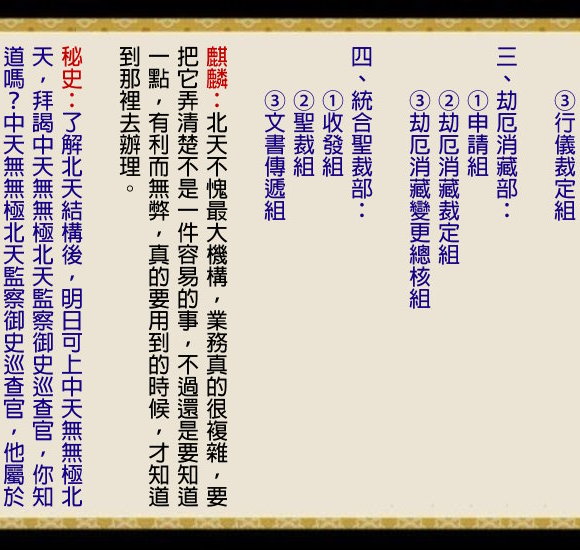 ③行儀裁定組
三、劫厄消藏部：
①申請組
②劫厄消藏裁定組
③劫厄消藏變更總核組
四、統合聖裁部：
①收發組
②聖裁組
③文書傳遞組
麒麟：北天不愧最大機構，業務真的很複雜，要
把它弄清楚不是一件容易的事，不過還是要知道
一點，有利而無弊，真的要用到的時候，才知道
到那裡去辦理。
秘史：了解北天結構後，明日可上中天無無極北
天，拜謁中天無無極北天監察御史巡查官，你知
道嗎？中天無無極北天監察御史巡查官，他屬於